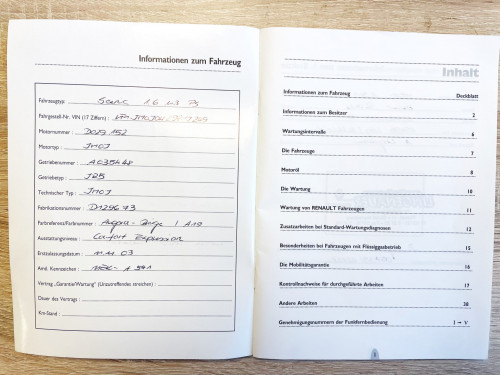 Informationen zum Fahrzeug
Fahrzeugtyp: Scenic 1.6
Fahrgestell-Nr. VIN (17 Ziffern):
Motornummer: D079152
Motortyp: JM0J
Getriebenummer: A035448
Getriebetyp: J25
Technischer Typ: JM0J
Fabrikationsnummer: D129673
Farbreferenz/Farbnummer: / A19
Ausstattungsniveau: Confort Expression
Erstzulassungsdatum: 11.11 03
Amtl. Kennzeichen: A 941
Vertrag „Garantie/Wartung" (Unzutreffendes streichen):
Dauer des Vertrags:
Km-Stand:
Inhalt
Informationen zum Fahrzeug Deckblatt
Informationen zum Besitzer 2
Wartungsintervalle 6
Die Fahrzeuge 7
Motoröl 8
Die Wartung 10
Wartung von RENAULT Fahrzeugen 11
Zusatzarbeiten bei Standard-Wartungsdiagnosen 12
Besonderheiten bei Fahrzeugen mit Flüssiggasbetrieb 15
Die Mobilitätsgarantie 16
Kontrollnachweise für durchgeführte Arbeiten 17
Andere Arbeiten 38
Genehmigungsnummern der Funkfernbedienung I – V